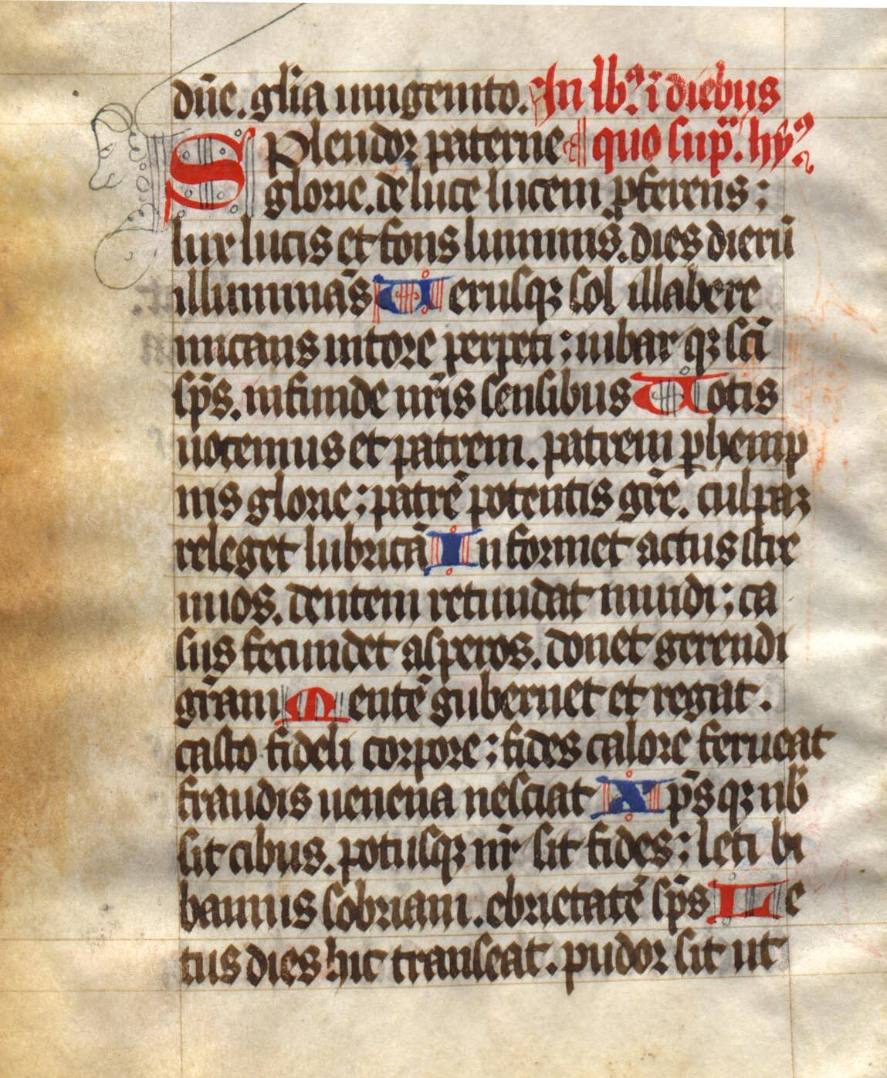 dn̄e. gl̄ia unigenito. In lb9 ī diebus
Splendor paterne quo sup̄. hȳ9
glorie. de luce lucem ꝓferens :
lux lucis et fons luminis. dies dierū
illuminās Uerusqꝫ sol illabere
micans nitore perpeti : iubar qꝫ sc̄i
sp̄s. infunde nr̄is sensibus Uotis
uocemus et patrem. patrem ꝑhemp
nis glorie : patrē potentis gr̄e. culpaꝫ
releget lubricā Informet actus stre
nuos. dentem retundat inuidi : ca
sus secundet asperos. donet gerendi
gr̄am Mentē gubernet et regat .
casto fideli corpore : fides calore ferueat
fraudis uenena nesciat Xp̄sqꝫ nb̄
sit cibus. potusqꝫ nr̄ sit fides : leti bi
bamus sobriam. ebrietatē sp̄s Le
tus dies hic transeat. pudor sit ut